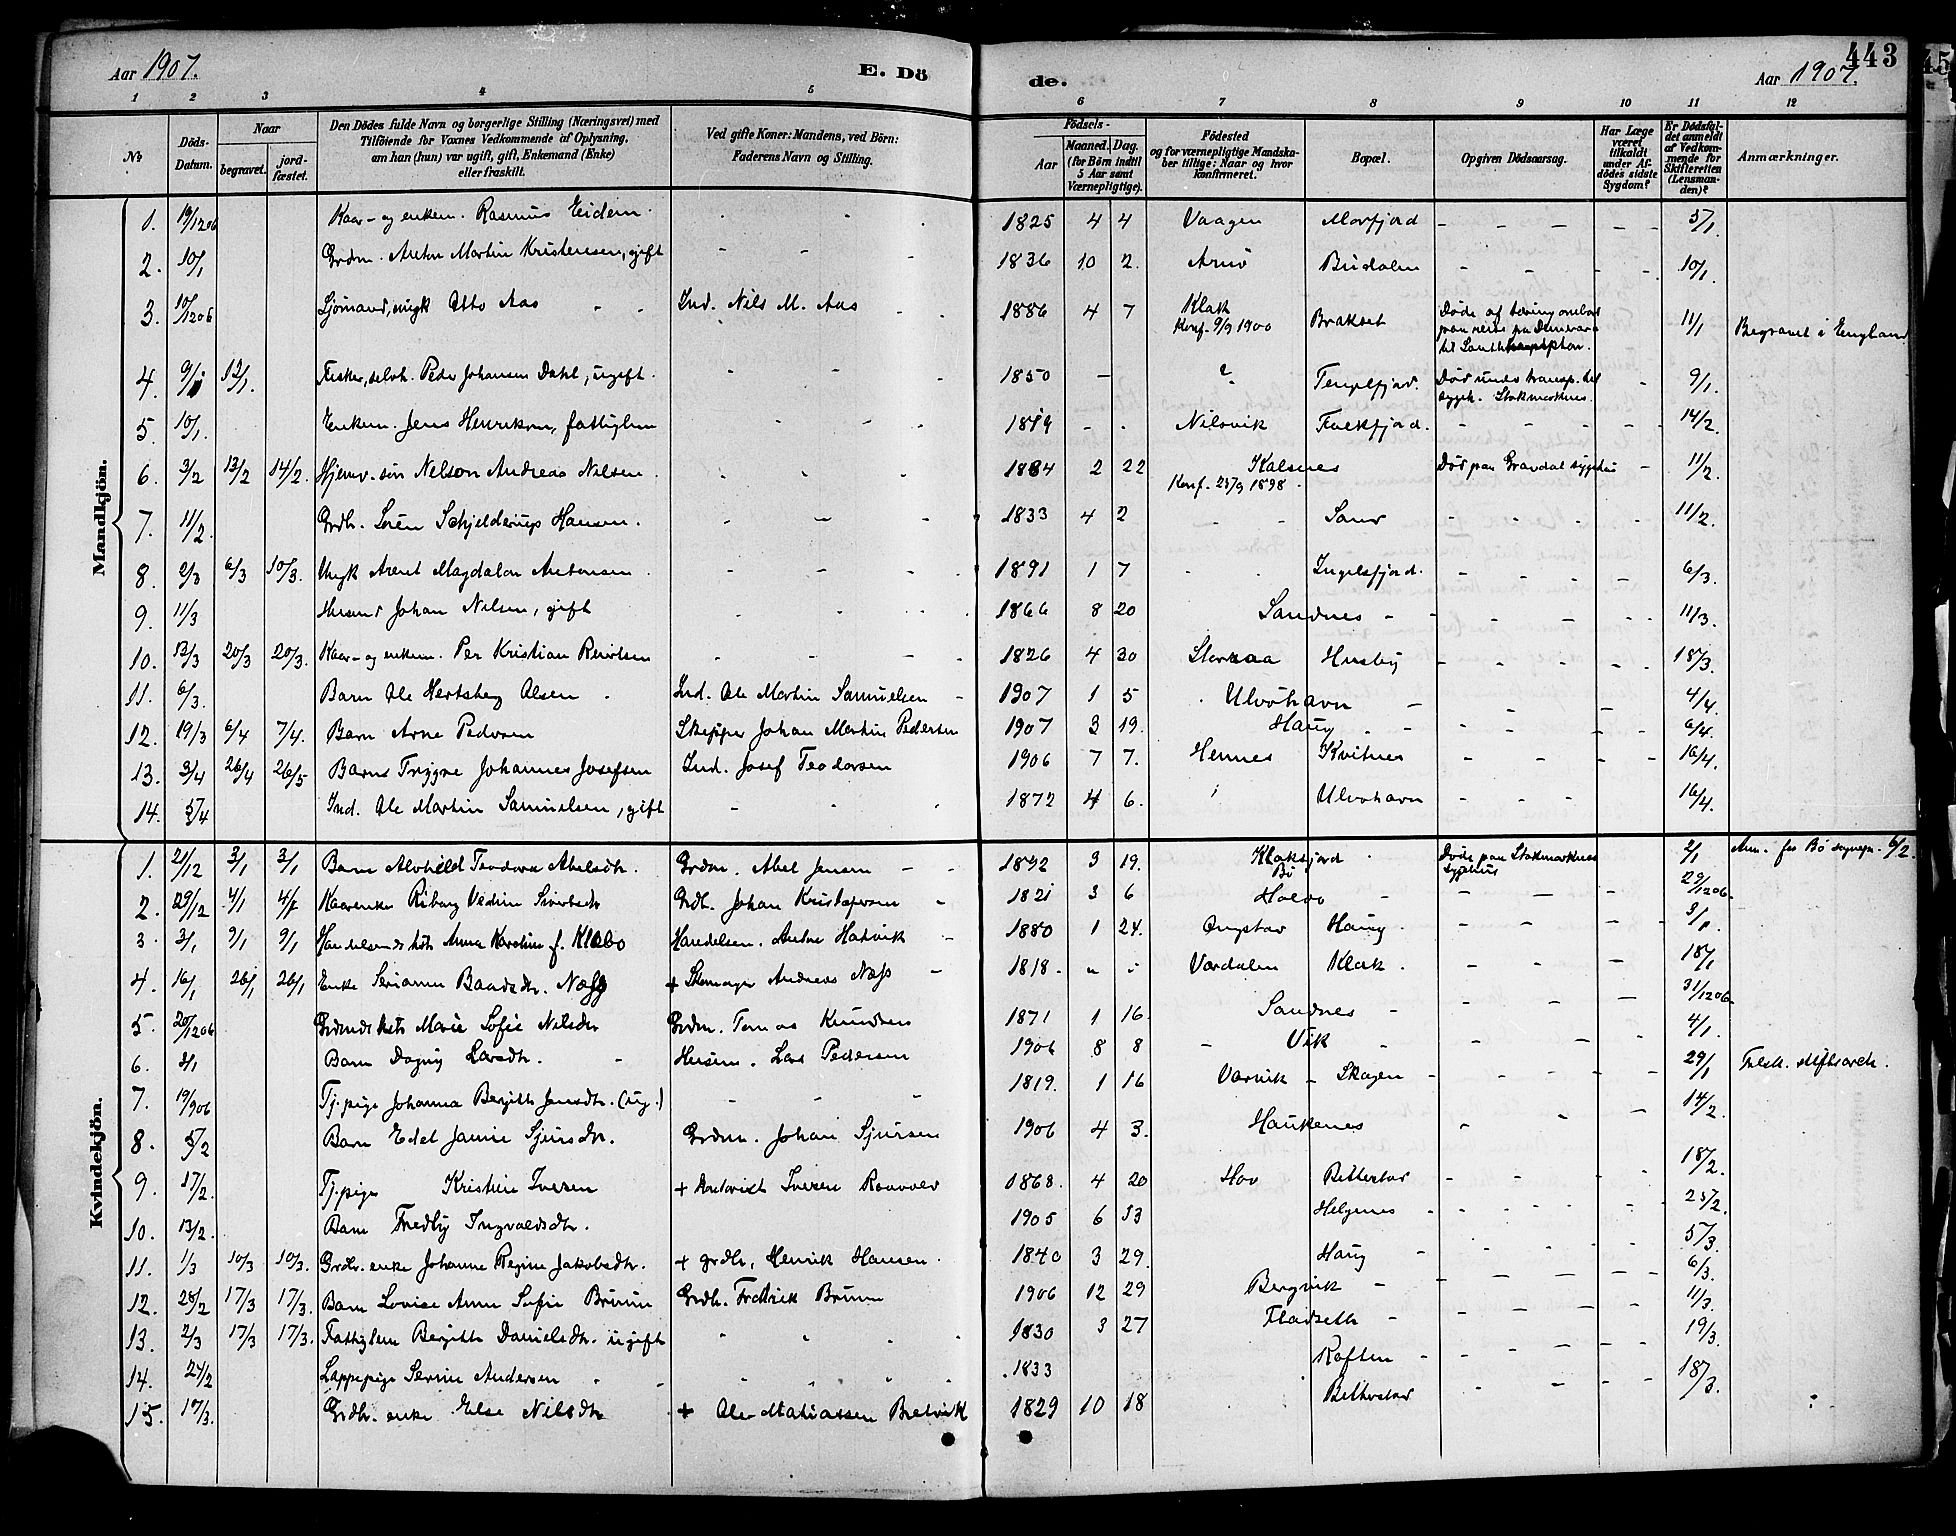 Aar 1907. E. Dö de. Aar 1907. 443
1 2 3 4 5 6 7 8 9 10 11 12
No Döds-Datum. Naar begravet. jordfæstet. Den Dödes fulde Navn og borgerlige Stilling (Næringsvei) med Tilföiende for Voxnes Vedkommende af Oplysning, om han (hun) var ugift, gift, Enkemand (Enke) eller fraskilt. Ved gifte Koner: Mandens, ved Börn: Faderens Navn og Stilling. Födsels- Aar Maaned. Dag. (for Börn indtil 5 Aar samt Værnepligtige). Födested og for værnepligtige Mandskaber tillige: Naar og hvor konfirmeret. Bopæl. Opgiven Dödsaarsag. Har Læge været tilkaldt under Afdödes sidste Sygdom? Er Dödsfaldet anmeldt af Vedkommende for Skifteretten (Lensmanden)? Anmærkninger.
Mandkjön.
1. 19/12 06 Kaar- og enkem. Rasmus Eidem 1825 4 4 Vaagen Morfjord 5/1.
2. 10/1 Grdm. Anton Martin Kristensen, gift 1836 10 2. Arnö Budalen 10/1.
3. 10/12 06 Sjömand, ungk Otto Aas Ind. Nils M. Aas 1886 4 7 Klak Konf. 9/9 1900 Brakset Döde af tæring ombord paa reise fra til Southhampton. 11/1 Begravet i England
4. 9/1 12/1. Fisker, selvh. Peder Johansen Dahl, ugift. 1850 – ? Tengelfjord. Död under transp. til sygeh. Stokmarknes 9/1.
5. 10/1. Enkem. Jens Henriksen, fattiglem 1819 Nilsvik Falkfjord. 14/2.
6. 3/2 13/2 14/2. Hjemv. sön Nelson Andreas Nilsen 1884 2 22 Kalsnes Konf. 25/9 1898 Död paa Gravdal sygehus 11/2.
7. 11/2. Grdb. Sören Schjelderup Hansen. 1833 4 2 Sand 11/2.
8. 2/3 6/3 10/3. Ungk Arent Magdalon Antonsen 1891 1 7 Ingelsfjord. 6/3.
9. 11/3 Husmd Johan Nilsen, gift 1866 8 20 Sandnes 11/3.
10. 13/3 20/3 20/3. Kaar- og enkem. Per Kristian 1826 4 30 Storvaa Husby 18/3.
11. 6/3. Barn Ole Hertsberg Olsen Ind. Ole Martin Samuelsen 1907 1 5 Ulvöhavn 4/4.
12. 19/3 6/4 7/4. Barn Arne Pedersen Skipper Johan Martin Pedersen 1907 3 19. Haug 6/4.
13. 3/4 26/4 26/5 Barn Trygve Johannes Josefsen Ind. Josef Teodorsen 1906 7 7. Hennes Kvitnes 16/4.
14. 5/4 Ind. Ole Martin Samuelsen, gift 1872 4 6. Ulvöhavn 16/4.
Kvindekjön.
1. 21/12 3/1 3/1 Barn Alvhild Teodora Abelsdtr. Grdm. Abel Jensen 1892 3 19. Klaksjord Bö Döde paa Stokmarknes sygehus 2/1 Anm. fra Bö sognepr. 6/2.
2. 29/12 4/1 4/1 Kaarenke Riborg Sivertsdtr Grdb. Johan Kristofersen 1821 3 6 29/12 06.
3. 3/1 9/1 9/1 Anna Karoline f. Klæbo Handelsm. Anton Hatvik 1880 1 24. Ongstad Haug 3/1.
4. 16/1 26/1 26/1 Enke Serianna Baardsdtr. Næss + Skomager Andreas Næss 1818. Værdalen Klak. 18/1
5. 20/12 06 Marie Sofie Nilsdtr Grdm. Tomas Knudsen 1871 1 16. Sandnes 31/12 06.
6. 2/1 Barn Dagny Larsdtr. Husm. Lars Pedersen 1906 8 8 Vik 4/1.
7. 19/9 06 Tj.pige Johanna Bergitte Jensdtr. (ug.) 1819. 1 16 Varvik Skagen 29/1
8. 5/2 Barn Edel Janne Sjursdtr. Grdm. Johan Sjursen 1906 4 3. Haukenes 14/2.
9. 17/2. Tj.pige Kristine Iversen + Iversen 1868. 4 20 Hov Bitterstad 18/2.
10. 13/2. Barn Fredly Ingvaldsdtr. 1905 6 13 Helgenes 25/2.
11. 1/3 10/3 10/3. Grdbr. enke Johanne Regine Jakobsdtr. + grdbr. Henrik Hansen 1840 3 29. Haug 5/3.
12. 28/2 17/3 17/3. Barn Lovise Anna Sofie Bruun Grdb. Fredrik Bruun 1906 12 29 Bergvik 6/3.
13. 2/3 17/3 17/3. Fattiglem Bergitte Danielsdtr. ugift 1830 3 27 Fladseth 11/3.
14. 24/2 Lappepige Serine Andersen 1833 Raften 19/3.
15. 17/3. Grdbr. enke Else Nilsdtr + Ole Mathiassen Bredvik 1829 10 18 Bitterstad 18/3.